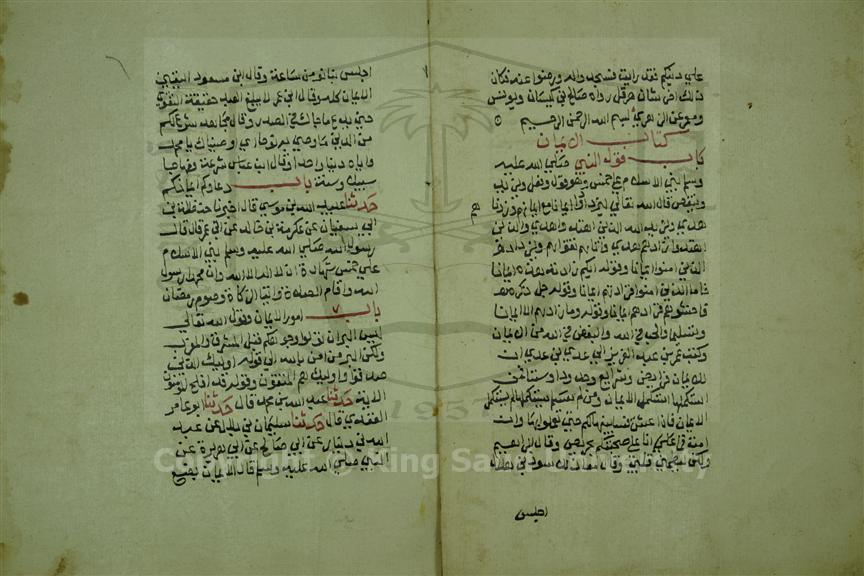 علي دينكم فقد رايت فسجدوا له ورضوا عنه فكان
ذلك اخر شان هرقل رواه صالح بن كيسان ويونس
ومعمر عن الزهري بسم الله الرحمن الرحيم
كتاب الايمان
باب قول النبي صلي الله عليه
وسلم بني الاسلام علي خمس وهو قول وفعل ويزيد
وينقص قال الله تعالي ليزدادوا ايمانا مع ايمانهم وزدناهم
هدي ويزيد الله الذين اهتدوا هدي والذين
اهتدوا زادهم هدي واتاهم تقواهم ويزداد
الذين امنوا ايمانا وقوله ايكم زادته هذه ايمانا
فاما الذين امنوا فزادتهم ايمانا وقوله جل ذكره
فاخشوهم فزادهم ايمانا وقوله وما زادهم الا ايمانا
وتسليما والحب في الله والبغض في الله من الايمان
وكتب عمر بن عبد العزيز الي عدي بن عدي ان
للايمان فرايض وشرايع وحدودا وسننا فمن
استكملها استكمل الايمان ومن لم يستكملها لم يستكمل
الايمان فان اعش فسابينها لكم حتي تعملوا بها وان
امت فما انا علي صحبتكم بحريص وقال ابراهيم
ولكن ليطمئن قلبي وقال معاذ للاسود بن هلال
اجلس
اجلس بنا نومن ساعة وقال ابن مسعود اليقين
الايمان كله وقال ابن عمر لا يبلغ العبد حقيقة التقوي
حتي يدع ما حاك في الصدر وقال مجاهد شرع لكم
من الدين ما وصي به نوحا اوصيناك يا محمد
واياه دينا واحدا وقال ابن عباس شرعة ومنهاجا
سبيلا وسنة باب دعاوكم ايمانكم
حدثنا عبيد الله بن موسي قال اخبرنا حنظلة بن
ابي سفيان عن عكرمة بن خالد عن ابن عمر قال قال
رسول الله صلي الله عليه وسلم بني الاسلام
علي خمس شهادة ان لا اله الا الله وان محمدا رسول
الله واقام الصلاة وايتا الزكاة وصوم رمضان
باب امور الايمان وقول الله تعالي
ليس البر ان تولوا وجوهكم قبل المشرق والمغرب
ولكن البر من امن بالله الي قوله اوليك الذين
صدقوا واوليك هم المتقون وقوله قد افلح المومنون
الاية حدثنا عبد الله بن محمد قال حدثنا ابو عامر
العقدي قال حدثنا سليمان بن بلال عن عبد
الله بن دينار عن ابي صالح عن ابي هريرة عن
النبي صلي الله عليه وسلم قال الايمان بضع